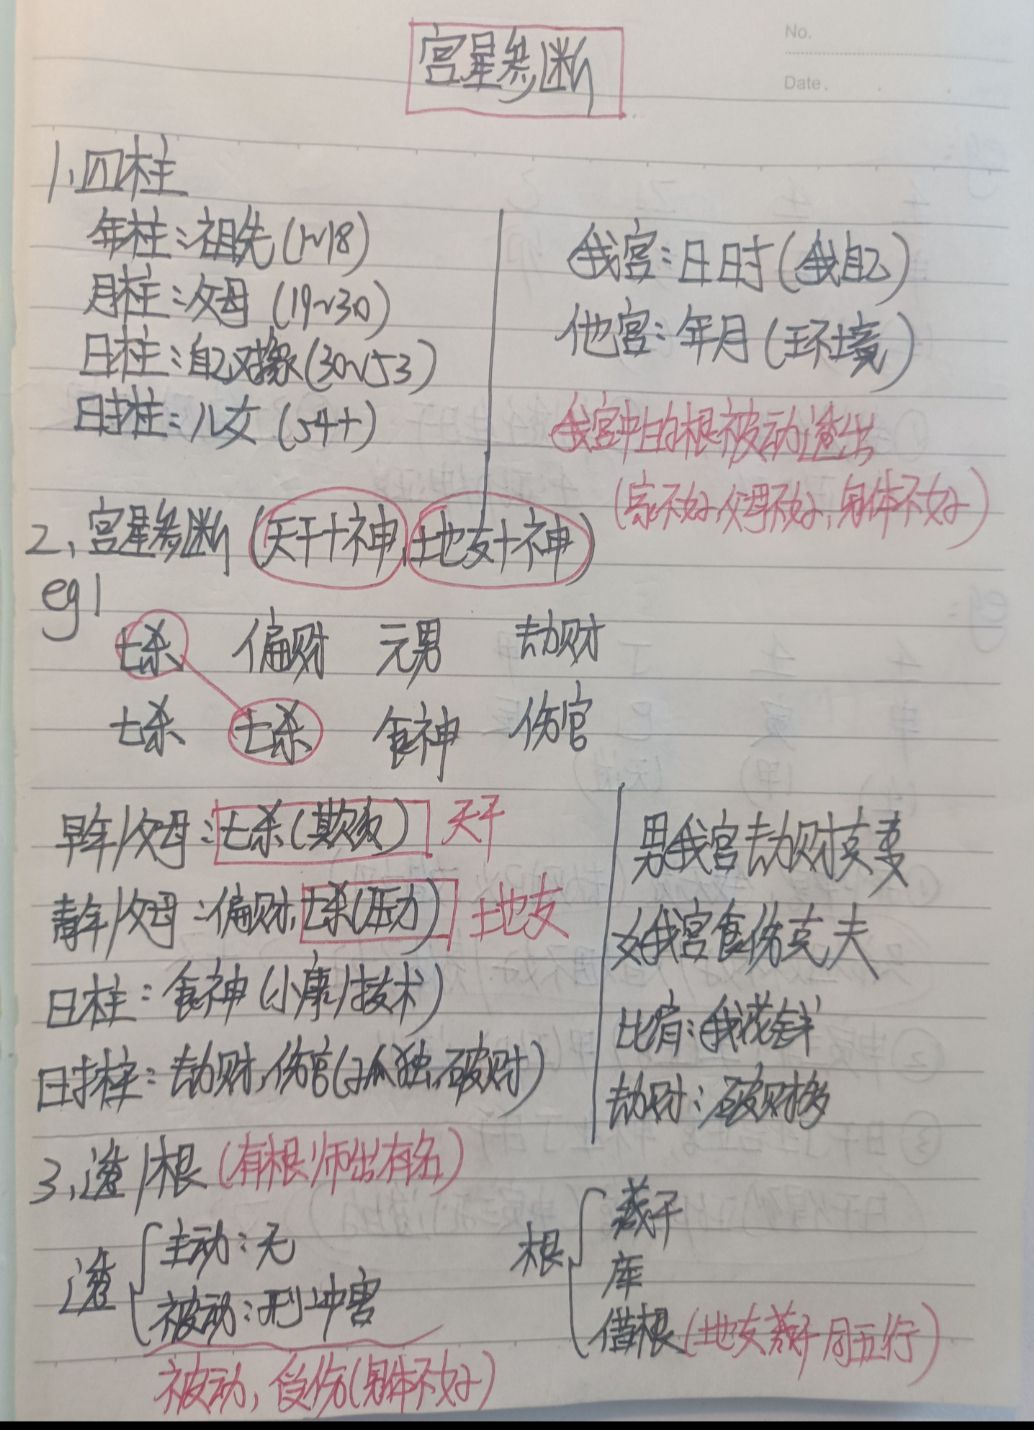 No.
Date.
宫星参断
1、四柱
年柱:祖先(1~18)
月柱:父母(19~30)
日柱:自己对象(30~53)
时柱:儿女(54+)
我宫:日时(我自己)
他宫:年月(环境)
我宫中的根被动透出
(家不好,父母不好,身体不好)
2、宫星参断(天干十神,地支十神)
eg1
七杀 偏财 元男 劫财
七杀 七杀 食神 伤官
早年/父母:七杀(欺负)天干
青年/父母:偏财,七杀(压力)地支
日柱:食神(小康/技术)
时柱:劫财,伤官(孤独,破财)
男我宫劫财克妻
女我宫食伤克夫
比肩:我花钱
劫财:破财多
3、透/根(有根师出有名)
透
主动:无
被动:刑冲害
被动,受伤(身体不好)
根
燕子
库
借根(地支燕子同五行)